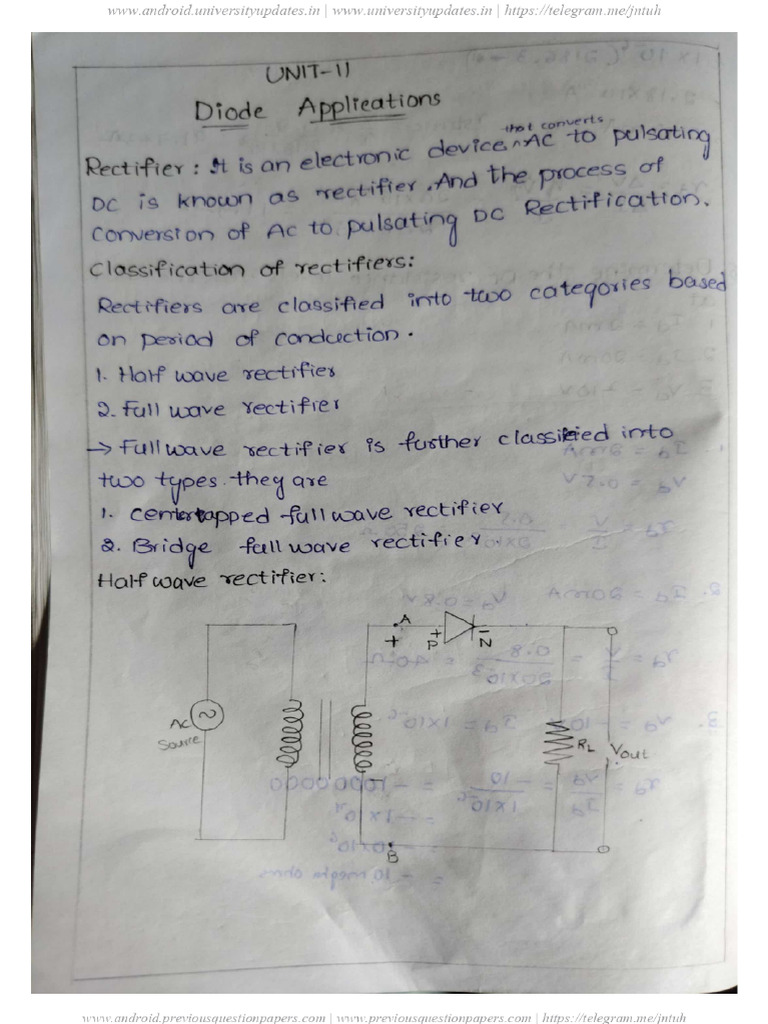 www.android.universityupdates.in | www.universityupdates.in | https://telegram.me/jntuh
UNIT-II
Diode Applications
that converts
Rectifier: It is an electronic device ^ AC to pulsating
DC is known as rectifier. And the process of
conversion of AC to pulsating DC Rectification.
Classification of rectifiers:
Rectifiers are classified into two categories based
on period of conduction.
1. Half wave rectifier
2. Full wave rectifier
→ Full wave rectifier is further classified into
two types they are
1. Center tapped full wave rectifier
2. Bridge full wave rectifier.
Half wave rectifier:
A
+
+
P
-
N
AC
Source
RL
Vout
B
www.android.previousquestionpapers.com | www.previousquestionpapers.com | https://telegram.me/jntuh